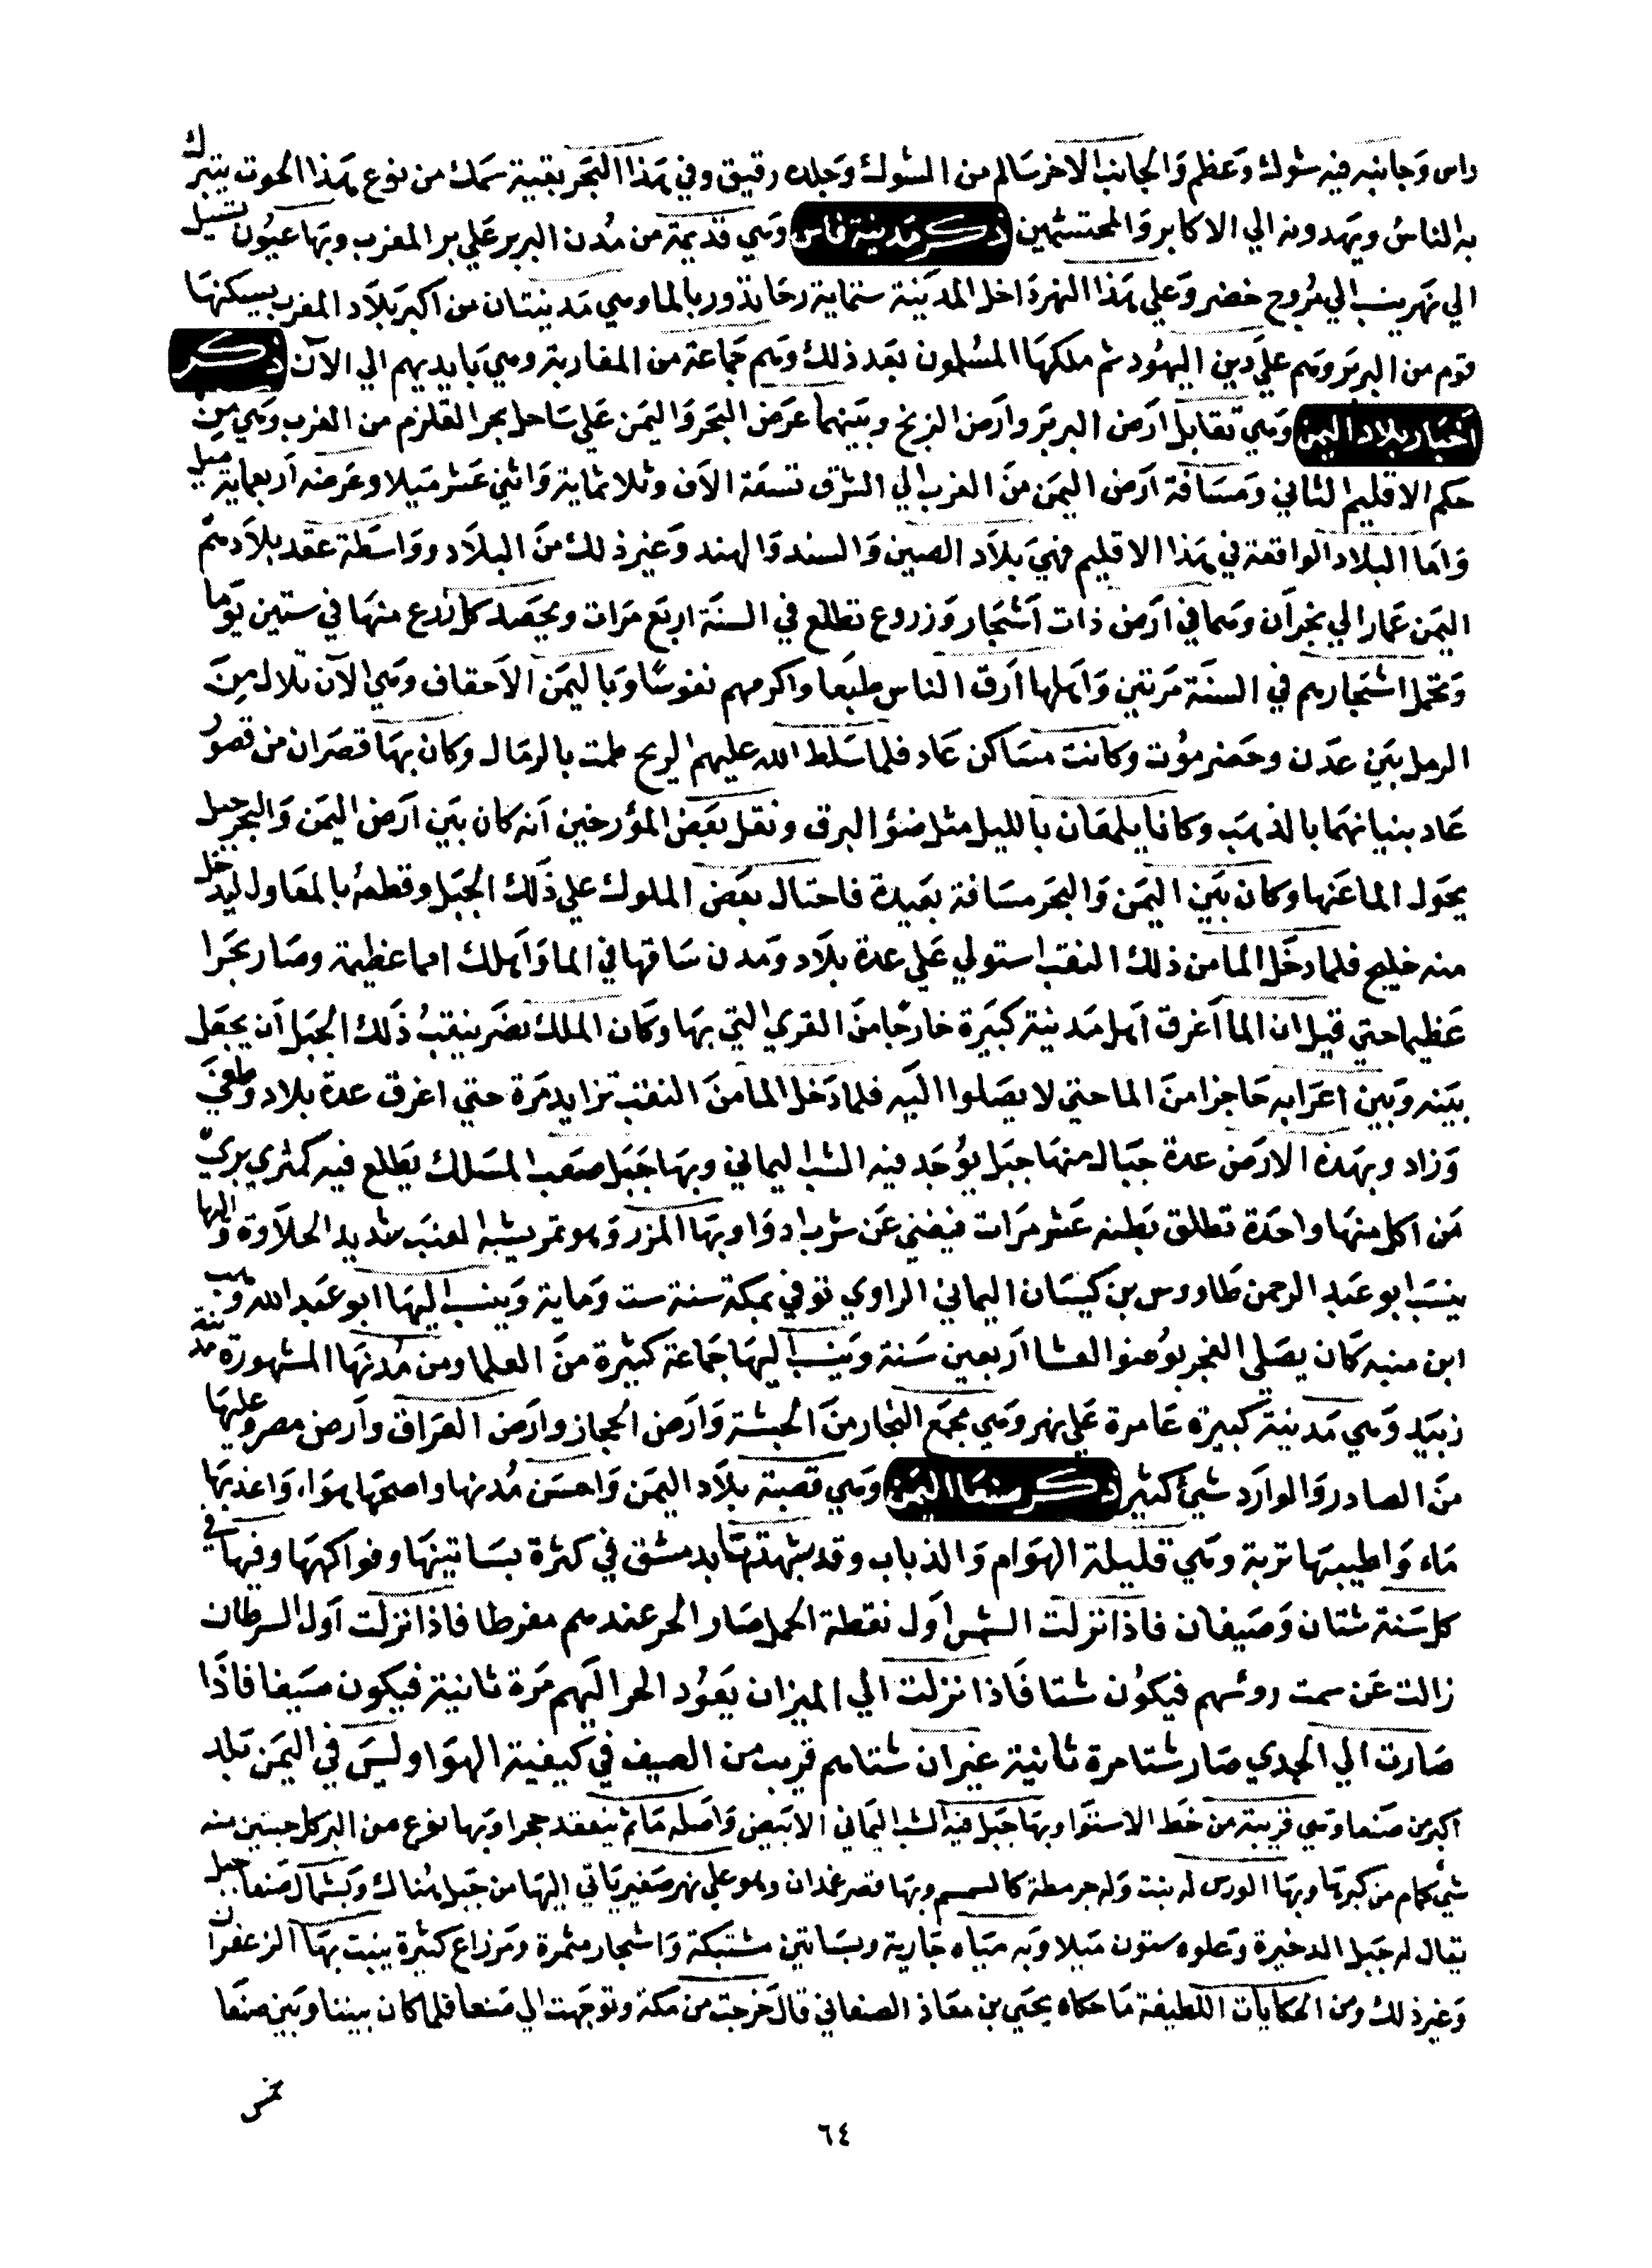 راس وجانبه فيه شوك وعظم والجانب الاخر سالم من الشوك وجلده رقيق وفي هذا البحر بقية سمك من نوع هذا الحوت يتبرك
به الناس ويهدونه الي الاكابر والمحتشمين ذكر مدينة فاس وهي قديمة من مدن البربر علي بر المغرب وبها عيون تسيل
الي نهر ينسب الي مروج خضر وعلي هذا النهر داخل المدينة ستماية رحا تدور بالما وهي مدينتان من اكبر بلاد المغرب يسكنها
قوم من البربر وهم علي دين اليهود ثم ملكها المسلمون بعد ذلك وهم جماعة من المغاربة وهي بايديهم الي الآن ذكر
اخبار بلاد اليمن وهي تقابل ارض البربر وارض الزنج وبينهما عرض البحر واليمن علي ساحل بحر القلزم من الغرب وهي من
حكم الاقليم الثاني ومسافة ارض اليمن من الغرب الي الشرق تسعة الاف وثلاثماية واثني عشر ميلا وعرضه اربعماية ميل
واما البلاد الواقعة في هذا الاقليم فهي بلاد الصين والسند والهند وغير ذلك من البلاد وواسطة عقد بلادهم
اليمن عمار الي نجران وهما في ارض ذات اشجار وزروع تطلع في السنة اربع مرات ويحصد كل زرع منها في ستين يوما
وتحمل اشجارهم في السنة مرتين واهلها ارق الناس طبعا واكرمهم نفوسا وباليمن الاحقاف وهي الآن تلال من
الرمل بين عدن وحضرموت وكانت مساكن عاد فلما سلط الله عليهم الريح طمت بالرمال وكان بها قصران من قصور
عاد بنيانهما بالذهب وكانا يلمعان بالليل مثل ضوّ البرق ونقل بعض المؤرخين انه كان بين ارض اليمن والبحر جبل
يحول الما عنها وكان بين اليمن والبحر مسافة بعيدة فاحتال بعض الملوك علي ذلك الجبل وقطعه بالمعاول ليدخل
منه خليج فلما دخل الما من ذلك النقب استولي علي عدة بلاد ومدن ساقها في الما واهلك امما عظيمة وصار بحرا
عظيما حتي قيل ان الما اغرق اهل مدينة كبيرة خارجا من القري التي بها وكان الملك بنقب ذلك الجبل ان يجعل
بينه وبين اعرابه حاجزا من الما حتي لا يصلوا اليه فلما دخل الما من النقب تزايد مرة حتي اغرق عدة بلاد وطغي
وزاد وبهذه الارض عدة جبال منها جبل يوجد فيه الشب اليماني وبها جبل صعب المسلك يطلع فيه كمثري بري
من اكل منها واحدة تطلق بطنه عشر مرات فيغني عن شرب ادوا وبها المزر وهو تمر يشبه العنب شديد الحلاوة واليها
ينسب ابو عبد الرحمن طاووس بن كيسان اليماني الراوي توفي بمكة سنة ست وماية وينسب اليها ابو عبد الله وهب
ابن منبه كان يصلي الفجر بوضو العشا اربعين سنة وينسب اليها جماعة كثيرة من العلما ومن مدنها المشهورة مدينة
زبيد وهي مدينة كبيرة عامرة علي نهر وهي مجمع التجار من الحبشة وارض الحجاز وارض العراق وارض مصر وعليها
من الصادر والوارد شيء كثير ذكر صنعا اليمن وهي قصبة بلاد اليمن واحسن مدنها واصحها هوا، واعذبها
ماء واطيبها تربة وهي قليلة الهوام والذباب وقد شبهتها بدمشق في كثرة بساتينها وفواكهها وفيها في
كل سنة شتان وصيفان فاذا نزلت الشمس اول نقطة الحمل صار الحر عندهم مفرطا فاذا نزلت اول السرطان
زالت عن سمت روسهم فيكون شتا فاذا نزلت الي الميزان يعود الحر اليهم مرة ثانية فيكون صيفا فاذا
صارت الي الجدي صار شتا مرة ثانية غير ان شتاهم قريب من الصيف في كيفية الهوا وليس في اليمن بلد
اكبر من صنعا وهي قريبة من خط الاستوا وبها جبل فيه الشب اليماني الابيض واصله ما ثم ينعقد حجرا وبها نوع من البر كل حبتين منه
في كمام من كبرها وبها الورس له بنت وله خرمطة كالسمسم وبها قصر غمدان وهو علي نهر صغير ياتي اليها من جبل هناك وبشمال صنعا جبل
يقال له جبل الدخيرة وعلوه ستون ميلا وبه مياه جارية وبساتين مشتبكة واشجار مثمرة ومزارع كثيرة ينبت بها الزعفران
وغير ذلك ومن الحكايات اللطيفة ما حكاه يحيي بن معاذ الصنعاني قال خرجت من مكة وتوجهت الي صنعا فلما كان بيننا وبين صنعا
خمس
٦٤